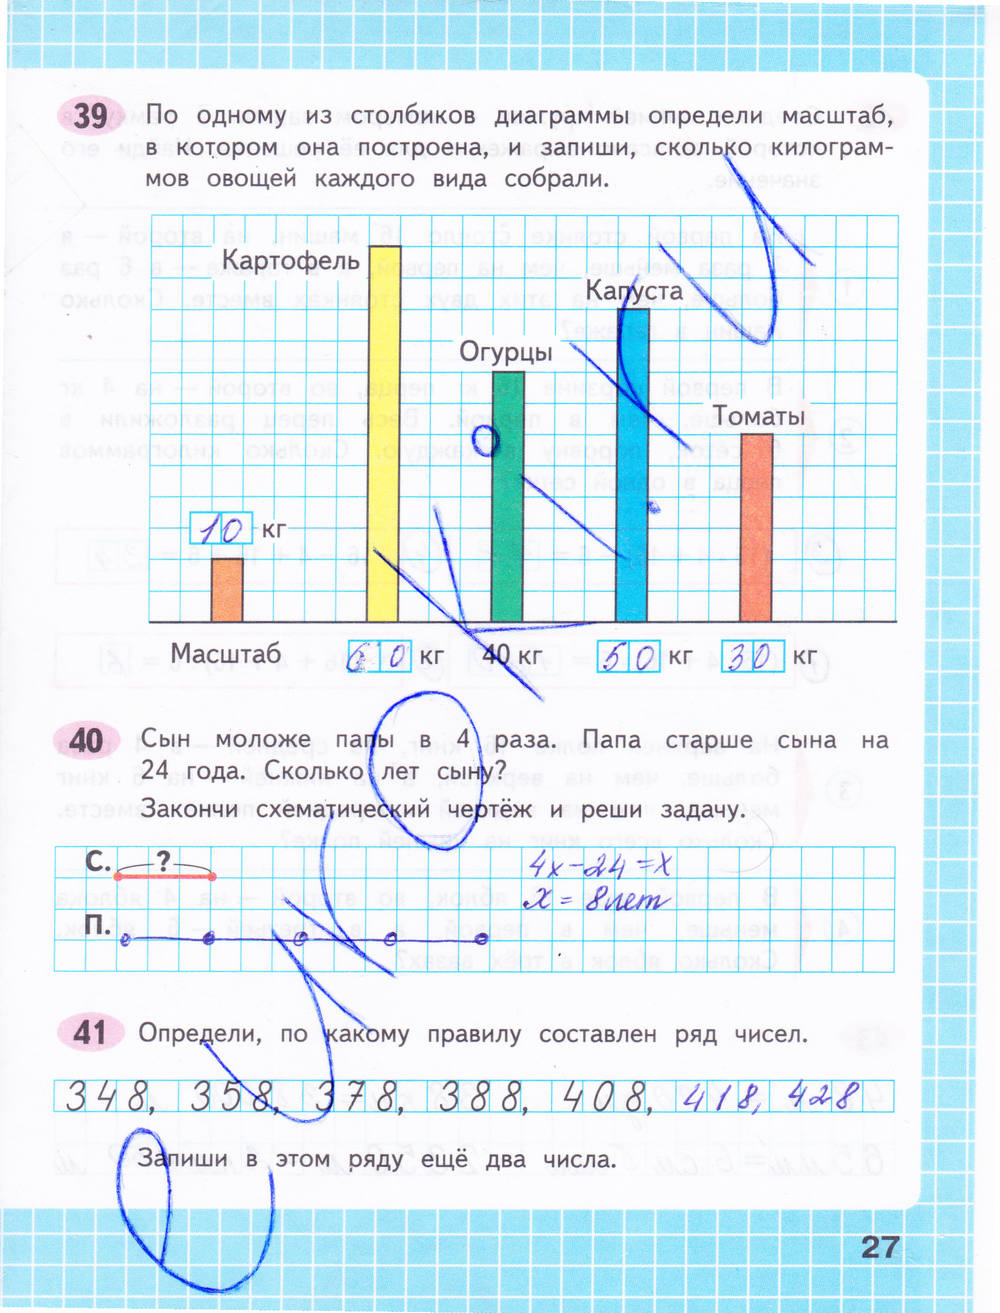 39 По одному из столбиков диаграммы определи масштаб,
в котором она построена, и запиши, сколько килограм-
мов овощей каждого вида собрали.
Картофель
Капуста
Огурцы
Томаты
10 кг
Масштаб 60 кг 40 кг 50 кг 30 кг
40 Сын моложе папы в 4 раза. Папа старше сына на
24 года. Сколько лет сыну?
Закончи схематический чертёж и реши задачу.
С. ? 4х-24=х
х = 8лет
П.
41 Определи, по какому правилу составлен ряд чисел.
348, 358, 378, 388, 408, 418, 428
Запиши в этом ряду ещё два числа.
27